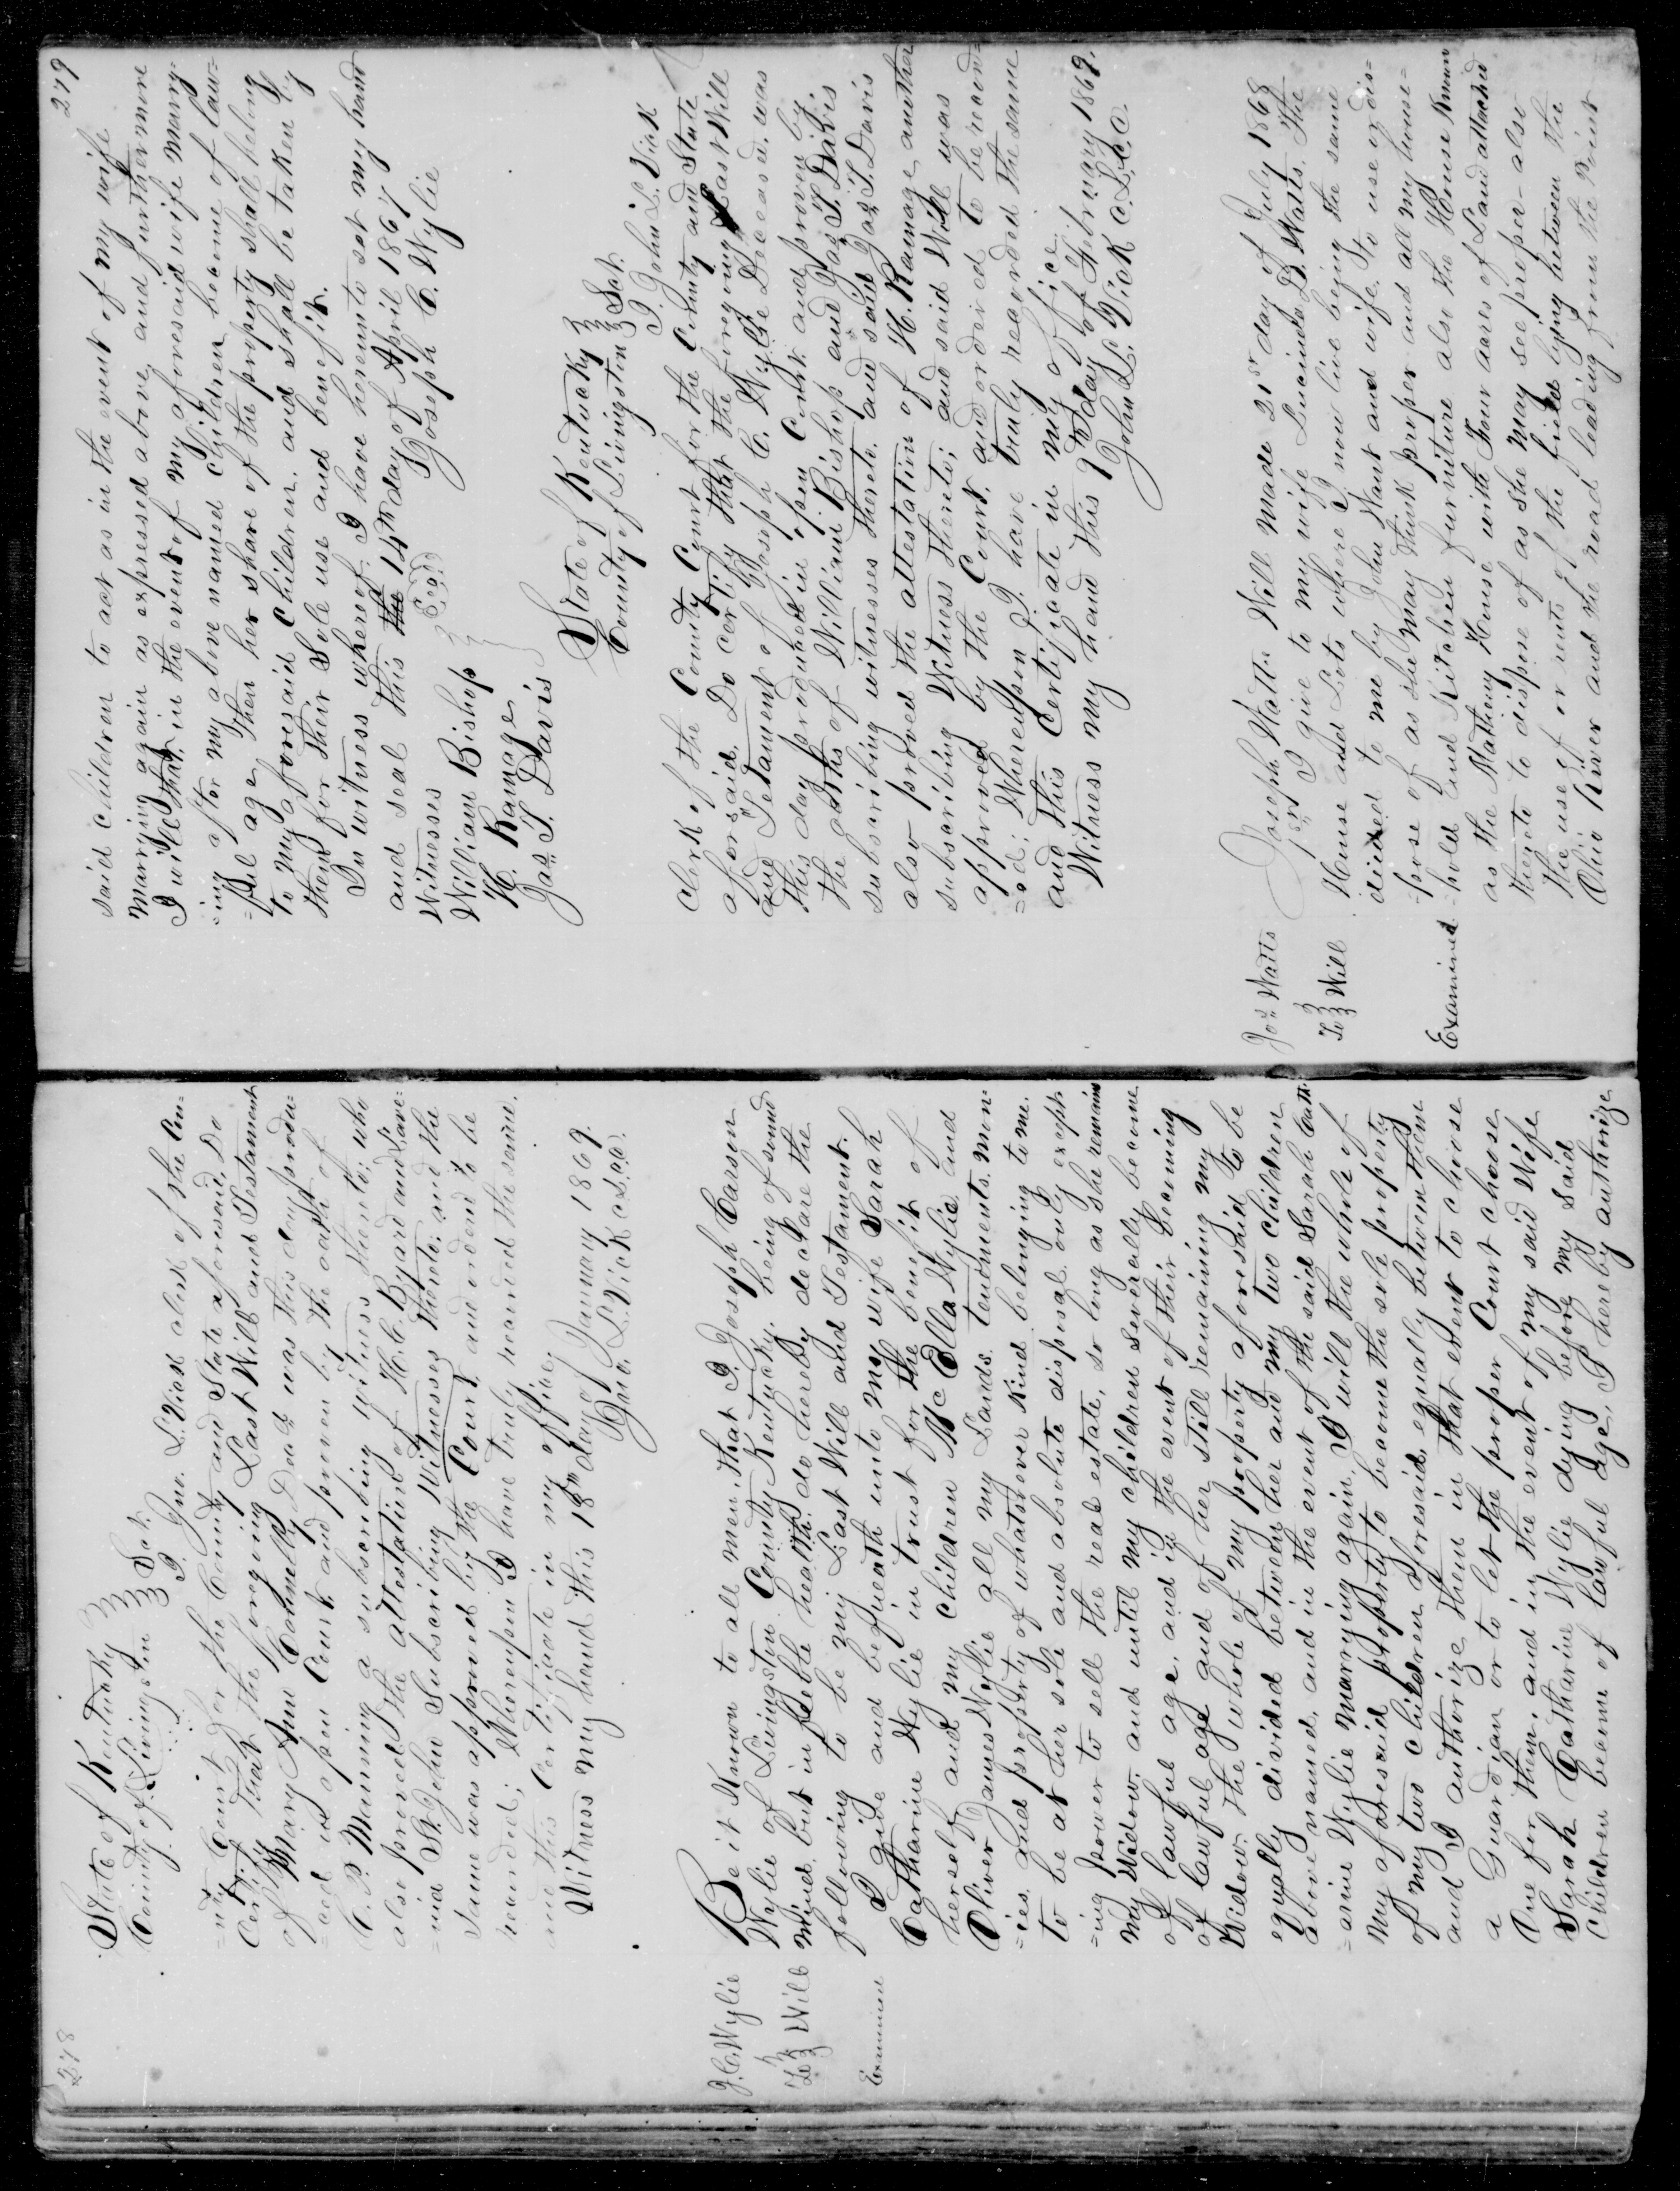 278
State of Kentucky
County of Livingston } Sct.
I Jno. L. Vick clerk of the Cou=
=nty Court for the County and State aforesaid, Do
Certify that the foregoing Last Will and Testament
of Mary Ann Connelly Decd. was this day produ=
=ced in open Court and proven by the oath of
C. P. Manning a subscribing witness thereto; who
also proved the attestation of H. C. Byard and
said St. John Subscribing Witnesses thereto; and the
same was approved by the Court, and ordered to be
recorded; Whereupon I have truly recorded the same.
and this Certificate in my office
Witness my hand this 18th day of January 1869.
Jno. L. Vick C.L.C.C.
J. C. Wylie
To } Will
Examined
Be it Known to all men, that I, Joseph Carson
Wylie of Livingston County Kentucky, being of sound
mind, but in feeble health, do hereby declare the
following to be my Last Will and Testament.
I give and bequeath unto my wife Sarah
Catharine Wylie in trust for the benefit of
herself and my children Mc Ella Wylie and
Oliver James Wylie all my Lands, tenements, mon=
=ies and property of whatsoever kind belonging to me.
to be at her sole and absolute disposal, only except=
=ing power to sell the real estate, so long as she remains
my Widow, and until my children severally become
of lawful age, and in the event of their becoming
of lawful age and of her still remaining my
Widow, the whole of my property aforesaid to be
equally divided between her and my two children
above named, and in the event of the said Sarah Cath=
=arine Wylie marrying again, I will the whole of
my aforesaid property to become the sole property
of my two children aforesaid, equally between them
and I authorize them in that event to choose
a Guardian or to let the proper Court choose
One for them, and in the event of my said Wife
Sarah Catharine Wylie dying before my said
Children became of lawful age, I hereby authorize
279
said children to act as in the event of my wife
marrying again as expressed above, and furthermore
I will that, in the event of my aforesaid wife marry=
=ing after my above named children become of law=
=ful age, then her share of the property shall belong
to my aforesaid children, and shall be taken by
them for their sole use and benefit.
In witness whereof, I have hereunto set my hand
and seal this the 14th day of April 1867
Joseph C. Wylie
(Seal)
Witnesses
William Bishop
H. Ramage
Jas. T. Davis
State of Kentucky
County of Livingston } Sct.
I John L. Vick
clerk of the County Court for the County and State
aforesaid, Do certify that the foregoing Last Will
and Testament of Joseph C. Wylie Deceased, was
this day produced in open Court and proven by
the oaths of William Bishop and Jas. T. Davis
subscribing witnesses thereto. and said Jas. T. Davis
also proved the attestation of H. Ramage another
subscribing Witness thereto; and said Will was
approved by the Court, and ordered to be record=
=ed; Whereupon I have truly recorded the same
and this Certificate in my office
Witness my hand this 9th day of February 1869.
John L. Vick C.L.C.C.
Jos. Watts
To } Will
Examined
Joseph Watts Will made 21st day of July 1868
1st I give to my wife Lucinda D. Watts. The
House and Lots where I now live being the same
deeded to me by John Hunt and wife, to use or dis=
=pose of as she may think proper and all my house=
=hold and Kitchen furniture also the House known
as the Matheny House with Four acres of Land attached
thereto to dispose of as she may see proper - also
the use of or rents of the field lying between the
Ohio River and the road leading from the Point